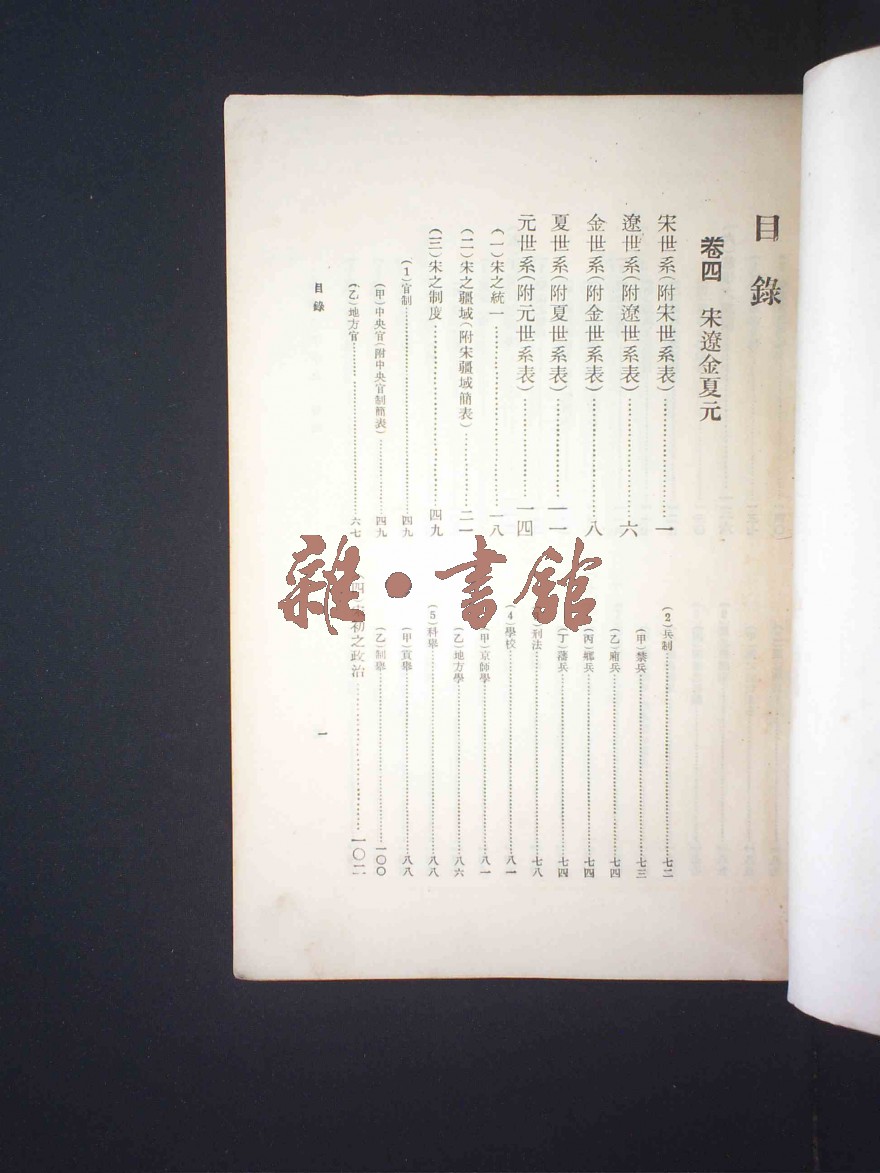 目錄
卷四 宋遼金夏元
宋世系(附宋世系表)……一
遼世系(附遼世系表)……六
金世系(附金世系表)……八
夏世系(附夏世系表)……一一
元世系(附元世系表)……一四
(一)宋之統一……一八
(二)宋之疆域(附宋疆域簡表)……二一
(三)宋之制度……四九
(1)官制……四九
(甲)中央官(附中央官制簡表)……四九
(乙)地方官……六七
(2)兵制……七二
(甲)禁兵……七三
(乙)廂兵……七四
(丙)鄉兵……七四
(丁)藩兵……七四
刑法……七八
(4)學校……八一
(甲)京師學……八一
(乙)地方學……八六
(5)科舉……八八
(甲)貢舉……八八
(乙)制舉……一〇〇
(四)宋初之政治……一〇二
目錄
一
雜·書館